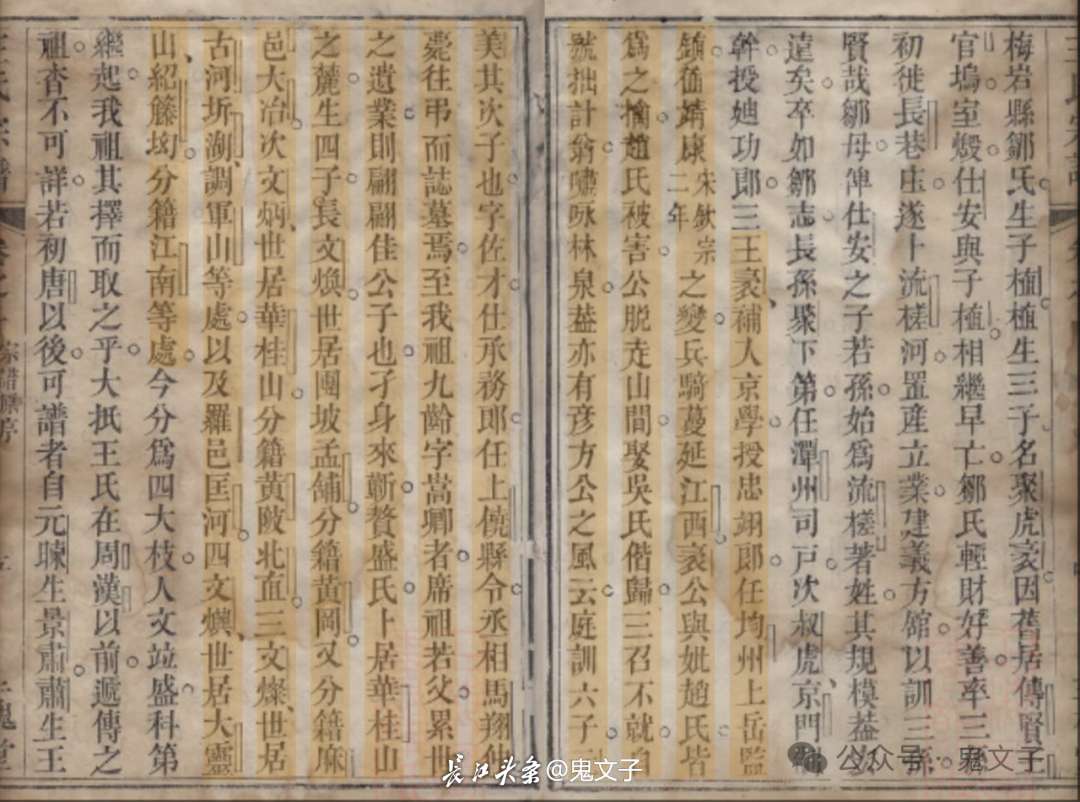 梅岩縣鄒氏生子植植生三子名聚虎袤因舊居傳賢
官塢室燬仕安與子植相繼早亡鄒氏輕財好善率三
初徙長巷庄遂卜流槎河置產立業建義方館以訓三孫
賢哉鄒母俾仕安之子若孫始爲流槎著姓其規模葢
遠矣卒如鄒志長孫聚下第任潭州司戸次叔虎京門
幹授廸功郎三王袤補入京學授忠翊郎任均州上岳監
鎮值靖康宋欽宗二年之變兵騎蔓延江西袤公與妣趙氏皆
爲之擒趙氏被害公脫走山間娶吳氏偕歸三召不就自
號拙計翁嘯咏林泉葢亦有彦方公之風云庭訓六子
美其次子也字佐才仕承務郎任上僥縣令丞相馬翔仲
薨往弔而誌墓焉至我祖九齡字嵩卿者席祖若父累世
之遺業則翩翩佳公子也孑身來蘄贅盛氏卜居華桂山
之麓生四子長文煥世居團坡孟舖分籍黄岡又分籍麻
邑大冶次文炳世居華桂山分籍黄陂北直三文燦世居
古河圻湖調軍山等處以及羅邑匡河四文燠世居大靈
山紀藤坳分籍江南等處今分爲四大枝人文竝盛科第
繼起我祖其擇而取之乎大抵王氏在周漢以前遞傳之
祖杳不可詳若初唐以後可譜者自元暕生景肅肅生王
長江头条@鬼文子
公众号 · 鬼文子